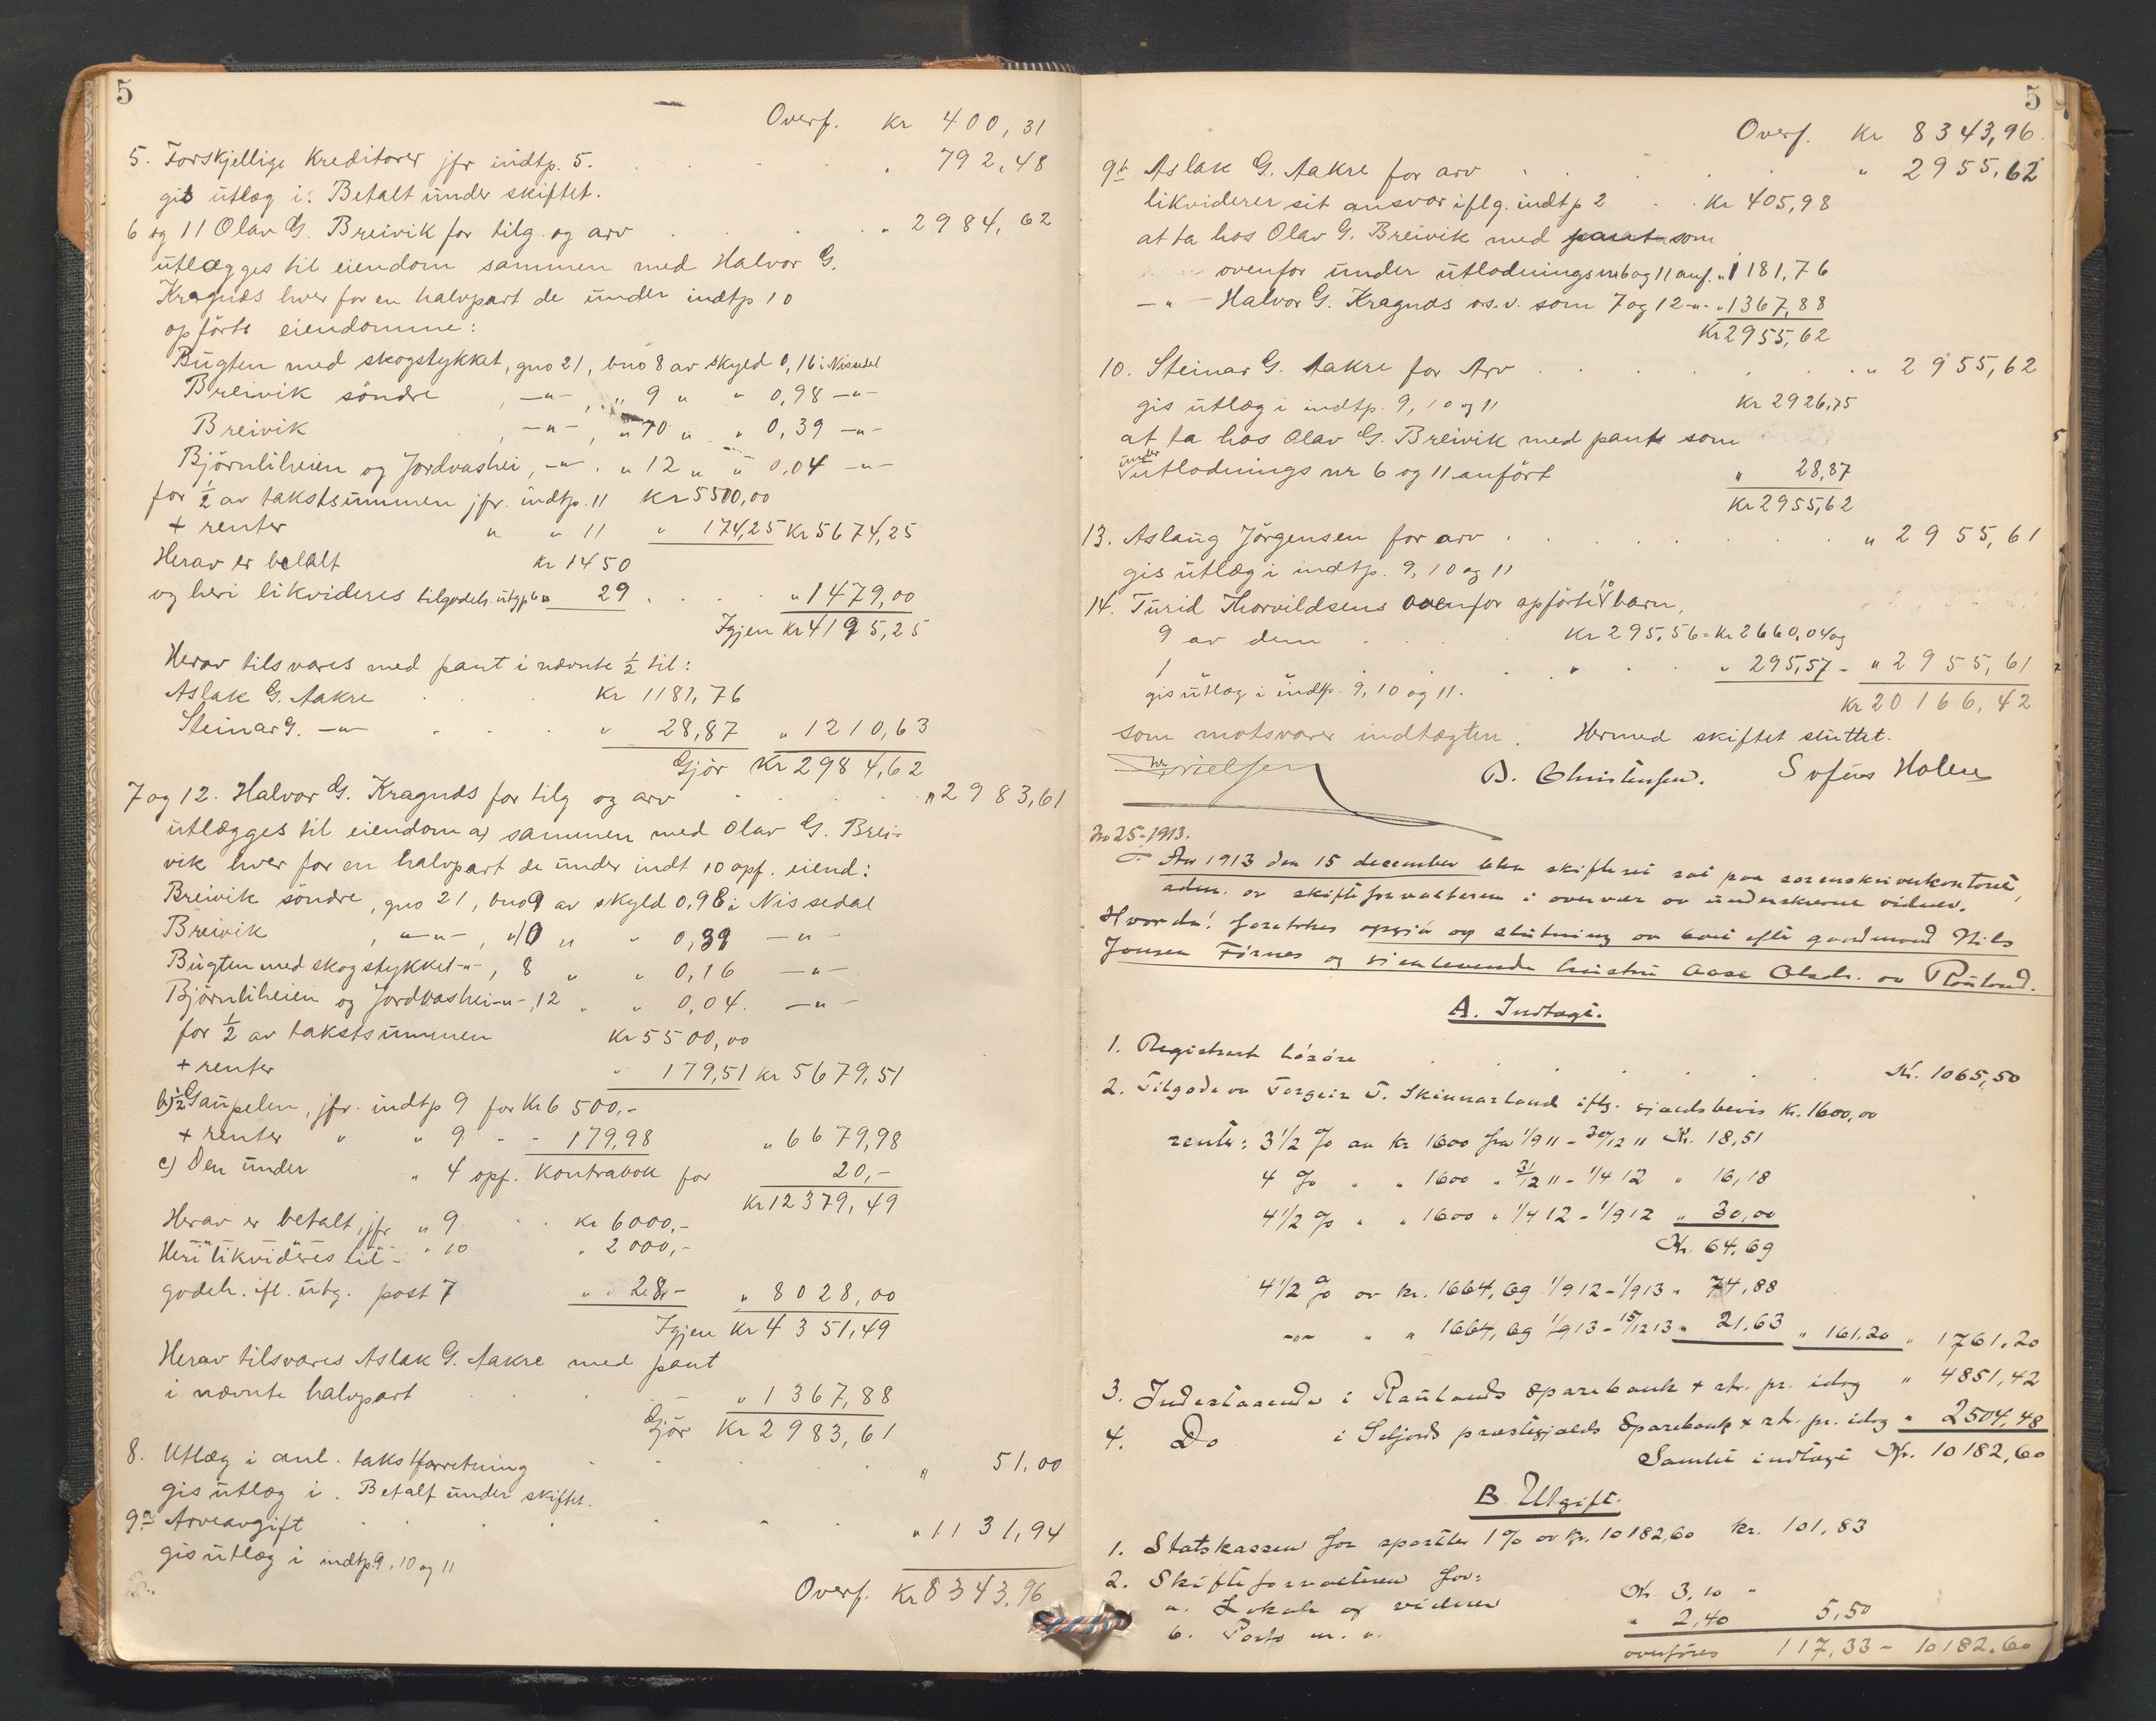 5
Overf. Kr 400,31
5. Forskjellige Kreditorer jfr indtp. 5. . . . . 792,48
gis utlæg i: Betalt under skiftet.
6 og 11 Olav G. Breivik for tilg. og arv . . . . " 2984,62
utlægges til eiendom sammen med Halvor G.
Kragnæs hver for en halvpart de under indtp 10
opførte eiendomme:
Bugten med skogstykket, gno 21, bno 8 av skyld 0,16 i Nissedal
Breivik søndre , —"— , " 9 " " 0,98 —"—
Breivik , —"— , " 10 " " 0,39 —"—
Bjørnliheien og Jordvashei, —"— . " 12 " " 0,04 —"—
for 1/2 av takstsummen jfr. indtp. 11 Kr 5500,00
+ renter " " 11 " 174,25 Kr 5674,25
Herav er betalt Kr 1450
og heri likvideres tilgodeh. utgp 6 " 29 . . . " 1479,00
Igjen Kr 4195,25
Herav tilsvares med pant i nævnte 1/2 til:
Aslak G. Aakre . . Kr 1181,76
Steinar G. —"— . . . " 28,87 " 1210,63
Gjør Kr 2984,62
7 og 12. Halvor G. Kragnæs for tilg og arv . . . . " 2983,61
utlægges til eiendom a) sammen med Olav G. Brei-
vik hver for en halvpart de under indt 10 opf. eiend:
Breivik søndre, gno 21, bno 9 av skyld 0,98 i Nissedal
Breivik , —"— , " 10 " " 0,39 —"—
Bugten med skogstykket —"—, 8 " " 0,16 —"—
Bjørnliheien og Jordvashei —"—, 12 " " 0,04. —"—
for 1/2 av takstsummen Kr 5500,00
+ renter " 179,51 Kr 5679,51
b) 1/2 Gaupelen, jfr. indtp 9 for Kr 6500,-
+ renter " " 9 - - 179,98 " 6679,98
c) Den under " 4 opf. Kontrabok for 20,-
Kr 12379,49
Herav er betalt, jfr " 9 . . Kr 6000,-
" " " " 10 " 2000,-
Heri likvideres til-
godeh. ifl. utg. post 7 " 28,- " 8028,00
Igjen Kr 4351,49
Herav tilsvares Aslak G. Aakre med pant
i nævnte halvpart . . . " 1367,88
Gjør Kr 2983,61
8. Utlæg i anl. takstforretning . . . . " 51,00
gis utlæg i. Betalt under skiftet.
9a Arveavgift . . . . . " 1131,94
gis utlæg i indtp 9, 10 og 11
Overf. Kr 8343,96
5
Overf. Kr 8343,96
9b Aslak G. Aakre for arv . . . . " 2955,62
likviderer sit ansvar iflg. indtp 2 . . Kr 405,98
at ta hos Olav G. Breivik med pant som
ovenfor under utlodningsnr 6 og 11 anf. " 1181,76
—"— Halvor G. Kragnæs o.s.v. som 7 og 12 —"— " 1367,88
Kr 2955,62
10. Steinar G. Aakre for Arv . . . . . " 2955,62
gis utlæg i indtp. 9, 10 og 11 Kr 2926,75
at ta hos Olav G. Breivik med pant som
under utlodnings nr 6 og 11 anført " 28,87
Kr 2955,62
13. Aslaug Jørgensen for arv . . . . . " 2955,61
gis utlæg i indtp. 9, 10 og 11
14. Turid Thorvildsens ovenfor opførte 10 barn,
9 av dem . . . Kr 295,56 = Kr 2660,04 og
1 . . . " . . " 295,57 - " 2955,61
gis utlæg i indtp. 9, 10 og 11.
Kr 20166,42
som motsvarer indtægten. Hermed skiftet sluttet.
Nielsen B. Christensen. Sofus Holen
No 25-1913.
Aar 1913 den 15 december blev skifteret sat paa sorenskriverkontoret,
adm. av skifteforvalteren i overvær av underskrevne vidner.
Hvorda: foretokes opgjør og slutning av boet efter gaardmand Nils
Jonsen Førnes og gjenlevende hustru Aase Olsdr. av Rauland.
A. Indtægt.
1. Registrert løsøre . . . . . Kr. 1065,50
2. Tilgode av Torgeir T. Skinnarland iflg. gjældsbevis Kr. 1600,00
rente: 3 1/2 % av kr 1600 fra 1/9 11 - 30/12 11 Kr. 18,51
4 % " " 1600 " 31/12 11 - 1/4 12 " 16,18
4 1/2 % " " 1600 " 1/4 12 - 1/9 12 " 30,00
Kr. 64,69
4 1/2 % av kr. 1664,69 1/9 12 - 1/9 13 " 74,88
—"— " " 1664,69 1/9 13 - 15/12 13 " 21,63 " 161,20 " 1761,20
3. Indestaaende i Raulands Sparebank + rtr. pr. idag " 4851,42
4. Do i Seljords præstegjælds Sparebank + rtr. pr. idag " 2504,48
Samlet indtægt Kr. 10182,60
B. Utgift.
1. Statskassen for sportler 1 % av kr. 10182,60 Kr. 101,83
2. Skifteforvalteren for:
a. Lokale og vidner Kr. 3,10 "
b. Porto m. v. " 2,40 5,50
overføres 117,33 - 10182,60